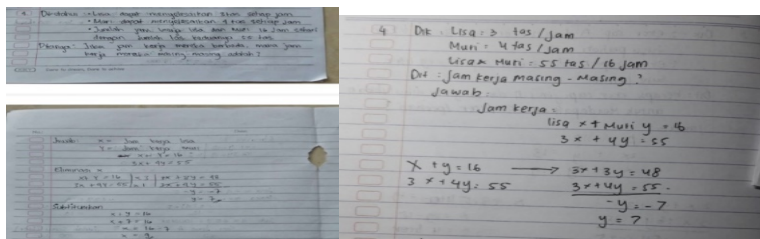 4. Diketahui : • Lisa dapat menyelesaikan 3 tas setiap jam
• Muri dapat menyelesaikan 4 tas setiap jam
• Jumlah jam kerja Lisa dan Muri 16 jam sehari
dengan jumlah tas keduanya 55 tas
Ditanya : Jika jam kerja mereka berbeda, maka jam
kerja mereka masing-masing adalah ?
Jawab : x = Jam kerja Lisa
y = Jam kerja Muri
x + y = 16
3x + 4y = 55
Eliminasi x
x + y = 16 | x 3 | 3x + 3y = 48
3x + 4y = 55 | x 1 | 3x + 4y = 55
-y = -7
y = 7
Substitusikan
x + y = 16
x + 7 = 16
x = 16 - 7
x = 9
4 Dik : Lisa : 3 tas / jam
Muri = 4 tas / jam
Lisa & Muri = 55 tas / 16 jam
Dit : Jam kerja masing - masing ?
Jawab
Jam kerja :
lisa x + Muri y = 16
3x + 4y = 55
x + y = 16 → 3x + 3y = 48
3x + 4y = 55 3x + 4y = 55 -
-y = -7
y = 7